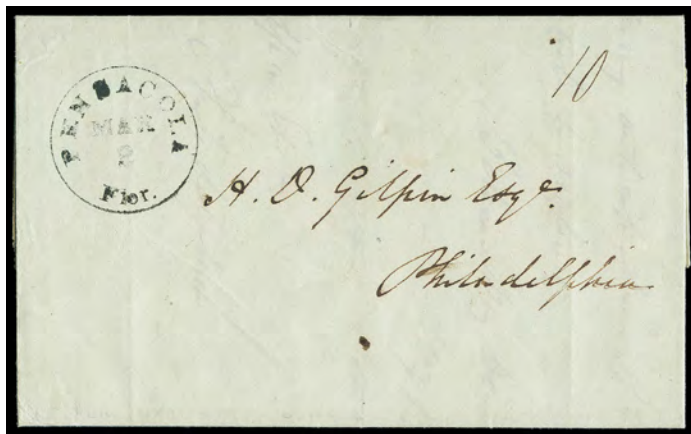 PENSACOLA
MAR
2
Flor.
10
H. D. Gilpin Esqr.
Philadelphia